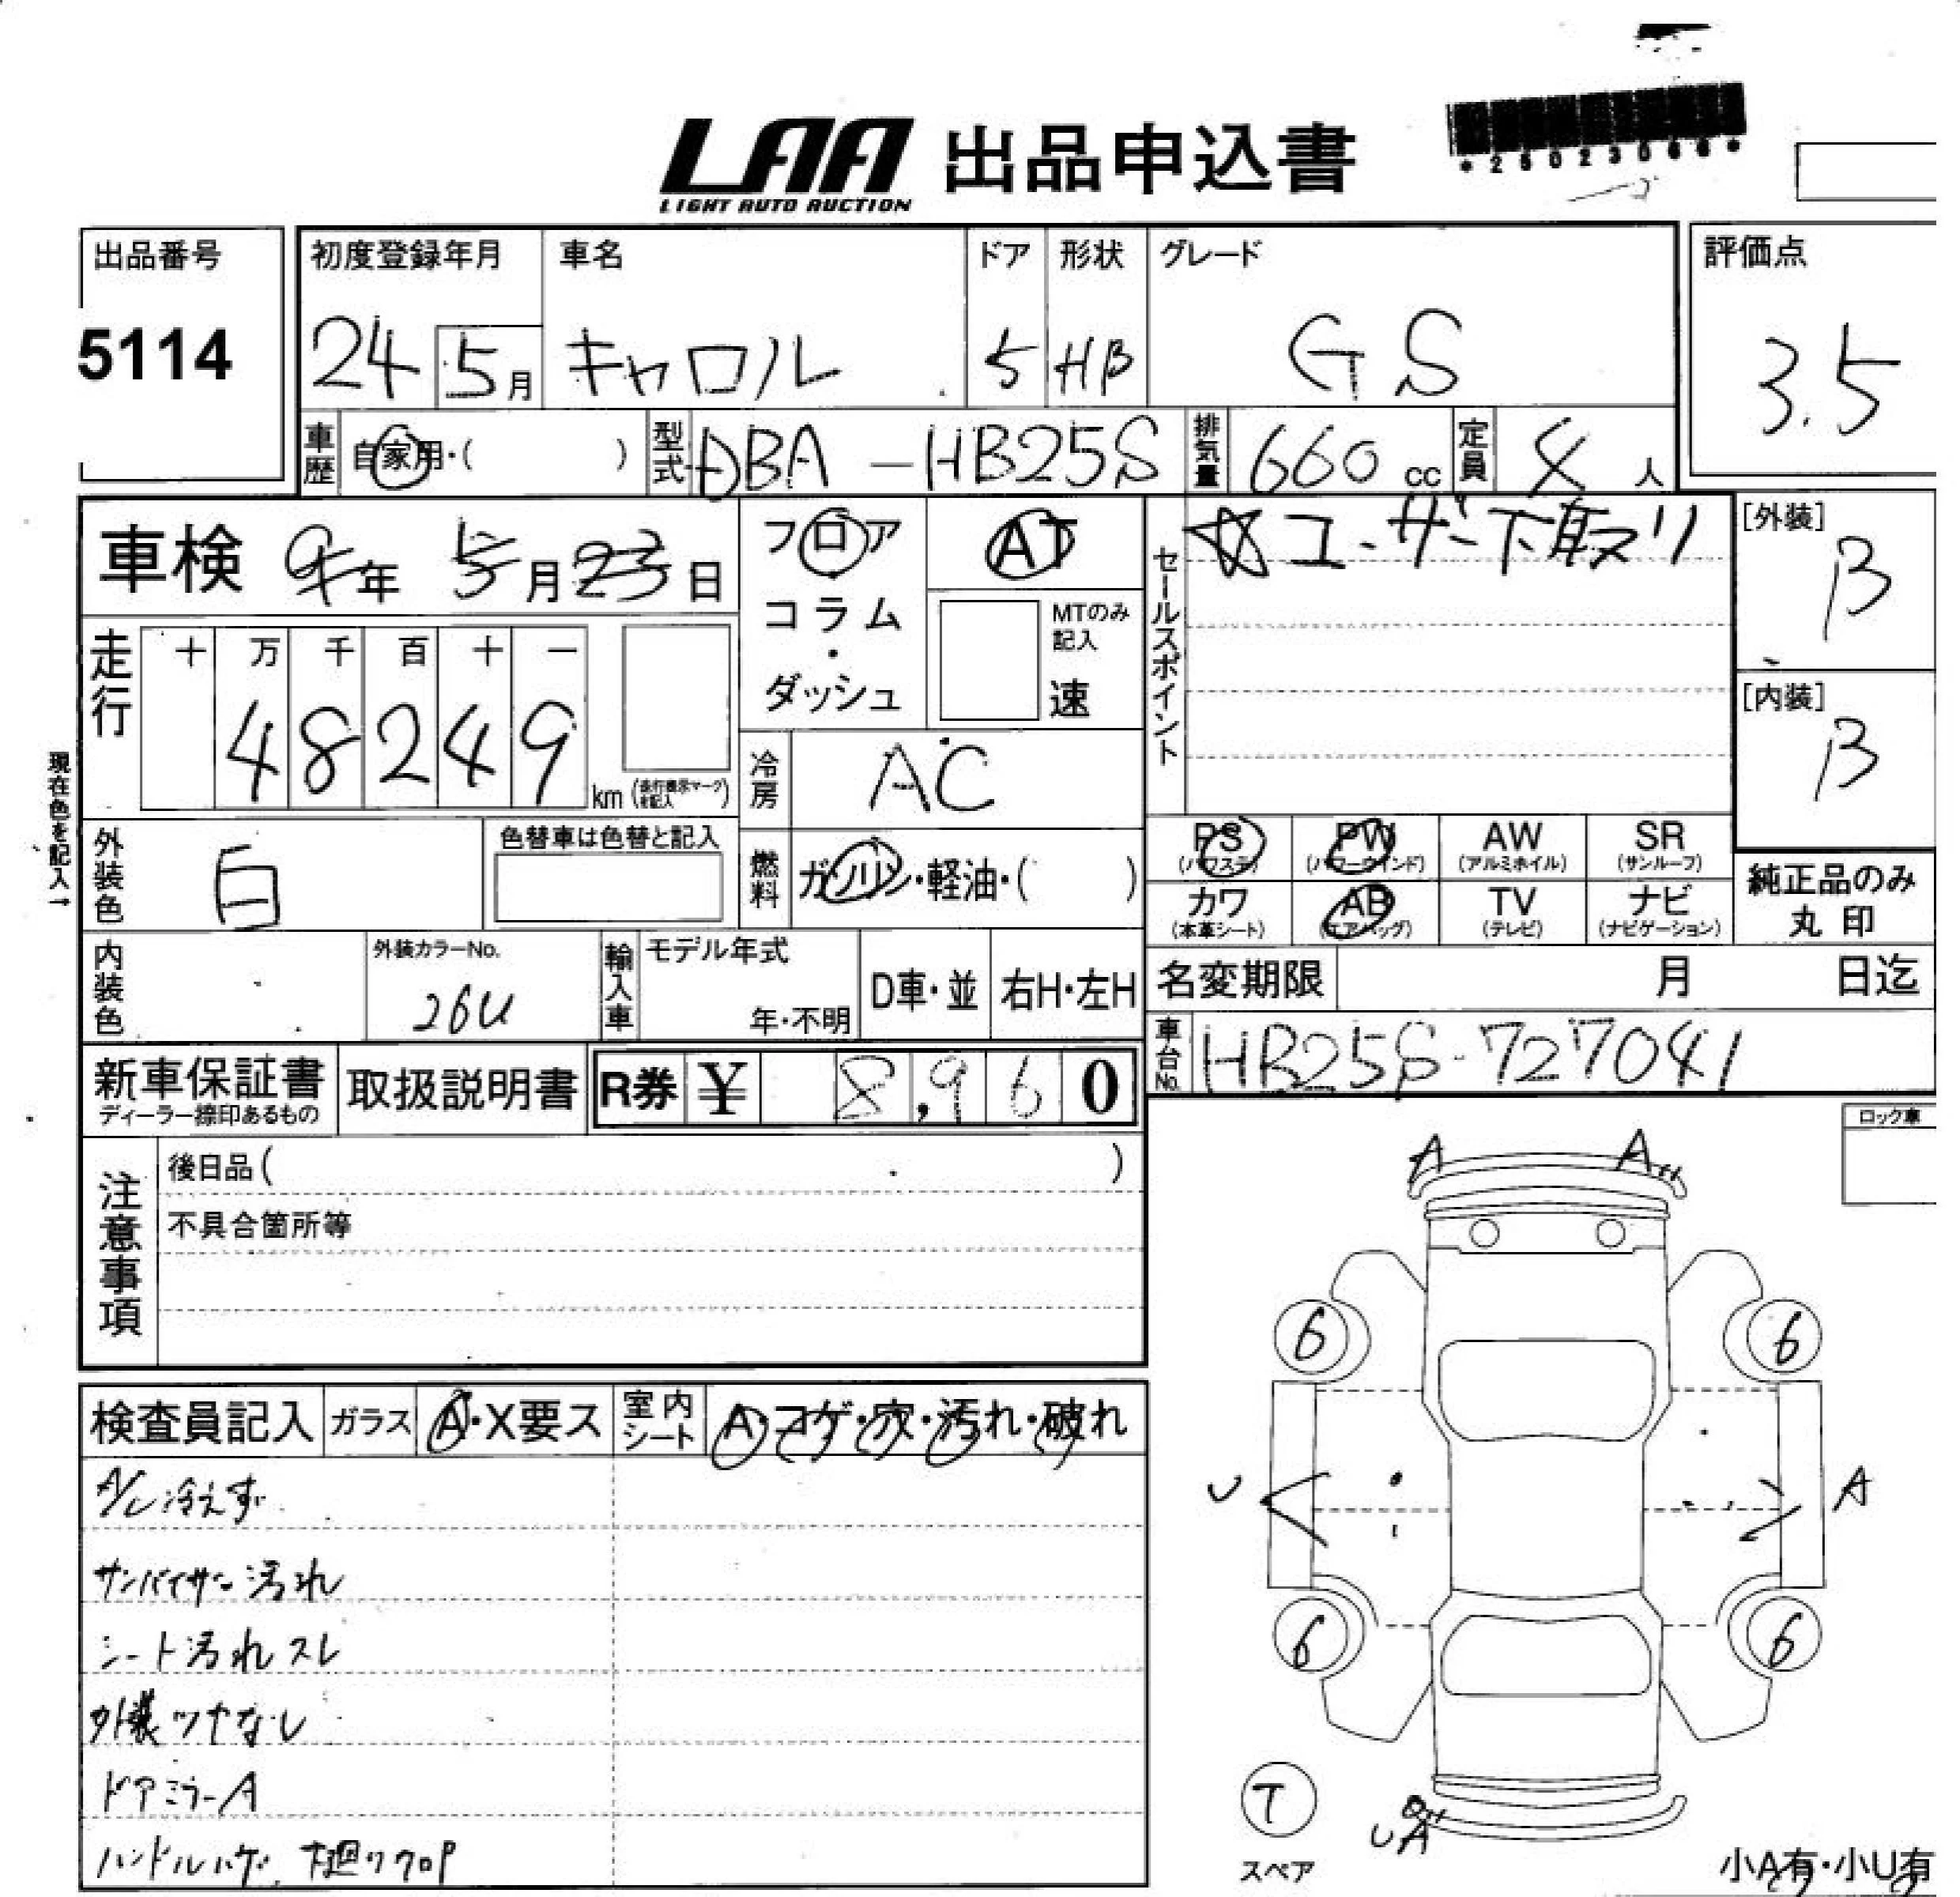 LAA 出品申込書
LIGHT AUTO AUCTION
*25023066*
出品番号
5114
初度登録年月 車名 ドア 形状 グレード 評価点
24 5月 キャロル 5 HB GS 3.5
車歴 自家用・( ) 型式 DBA-HB25S 排気量 660 cc 定員 4 人
車検 9年 5月 23日 フロア・コラム・ダッシュ AT
MTのみ記入 速
セールスポイント ☆ユーザー下取り
[外装] B
[内装] B
走行 十 万 千 百 十 一
4 8 2 4 9 km
現在色を記入→
冷房 AC
外装色 白 色替車は色替と記入
燃料 ガソリン・軽油・( )
PS (パワステ) PW (パワーウインド) AW (アルミホイル) SR (サンルーフ)
カワ (本革シート) AB (エアバッグ) TV (テレビ) ナビ (ナビゲーション)
純正品のみ丸印
内装色 外装カラーNo. 26U 輸入車 モデル年式 年・不明 D車・並 右H・左H
名変期限 月 日迄
車台No. HB25S-727041
新車保証書 ディーラー捺印あるもの 取扱説明書 R券 ¥ 8,960
注意事項 後日品( )
不具合箇所等
ロック車
A A
6 6
U A
6 6
T
スペア
U A
小A有・小U有
検査員記入 ガラス A・X要ス 室内シート A・コゲ・穴・汚れ・破れ
A/C冷えず
サンバイザー汚れ
シート汚れスレ
外装ツヤなし
ドアミラーA
ハンドルハゲ